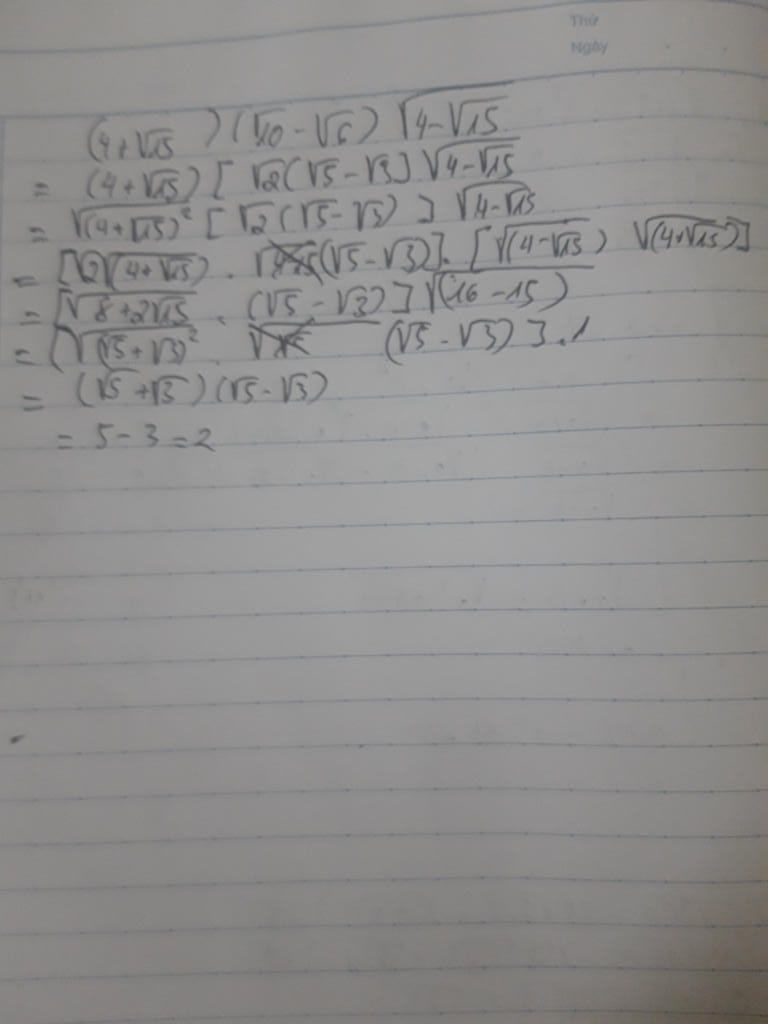 Thứ
Ngày
(4+√15)(√10 - √6) √(4-√15)
= (4+√15) [√2(√5 - √3] √(4-√15)
= √((4+√15)²) [√2(√5-√3)] √(4-√15)
= [√2√(4+√15) . (√5-√3)]. [√(4-√15) √(4+√15)]
= [√(8+2√15) . (√5-√3)] √(16-15)
= (√((√5+√3)²) . (√5-√3)].1
= (√5+√3)(√5-√3)
= 5-3=2